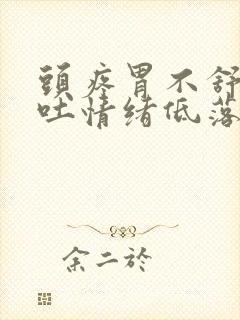 頭疼胃不舒
吐情绪低落
余二於